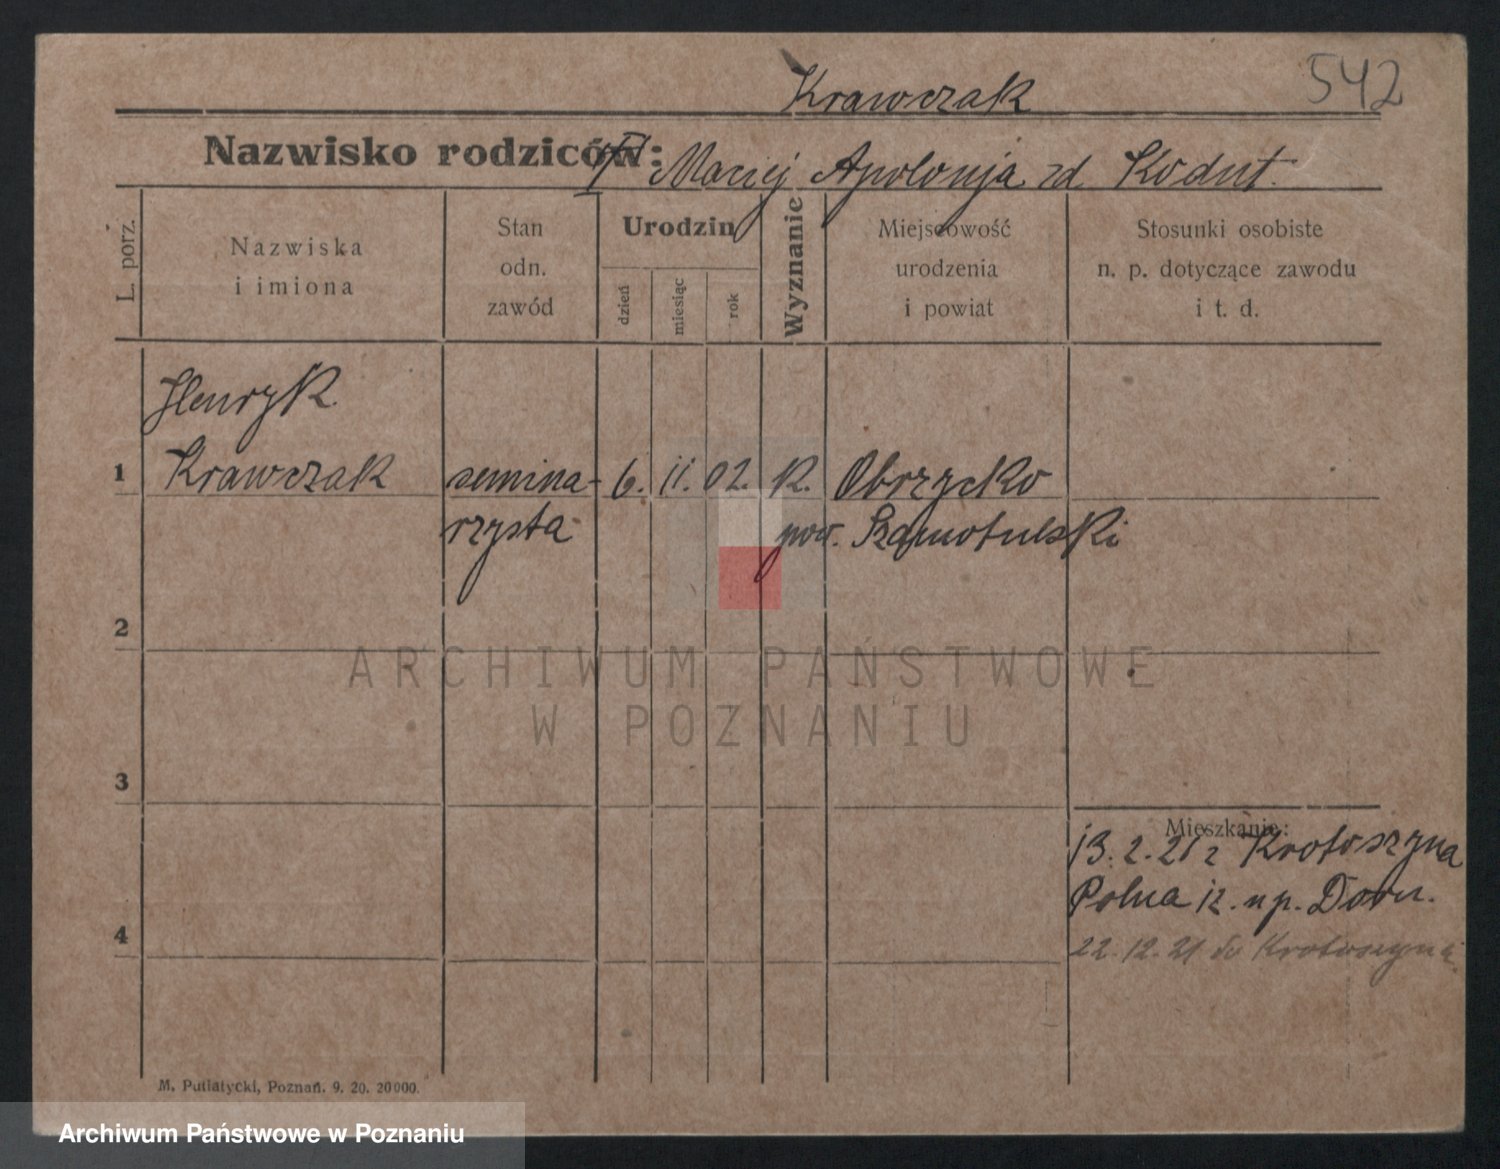 Krawczak 542
Nazwisko rodziców: Maciej Apolonja zd. Kodut.
L. porz.
Nazwiska
i imiona
Stan
odn.
zawód
Urodzin
dzień
miesiąc
rok
Wyznanie
Miejscowość
urodzenia
i powiat
Stosunki osobiste
n. p. dotyczące zawodu
i t. d.
Henryk
1 Krawczak semina- 6. 11. 02. K. Obrzycko
rzysta pow. Szamotulski
2
ARCHIWUM PAŃSTWOWE
W POZNANIU
3
Mieszkanie:
13.2.21 z Krotoszyna
Polna 12. u p. Dorn.
4
22.12.21 do Krotoszyna
M. Putiatycki, Poznań. 9. 20. 20000.
Archiwum Państwowe w Poznaniu